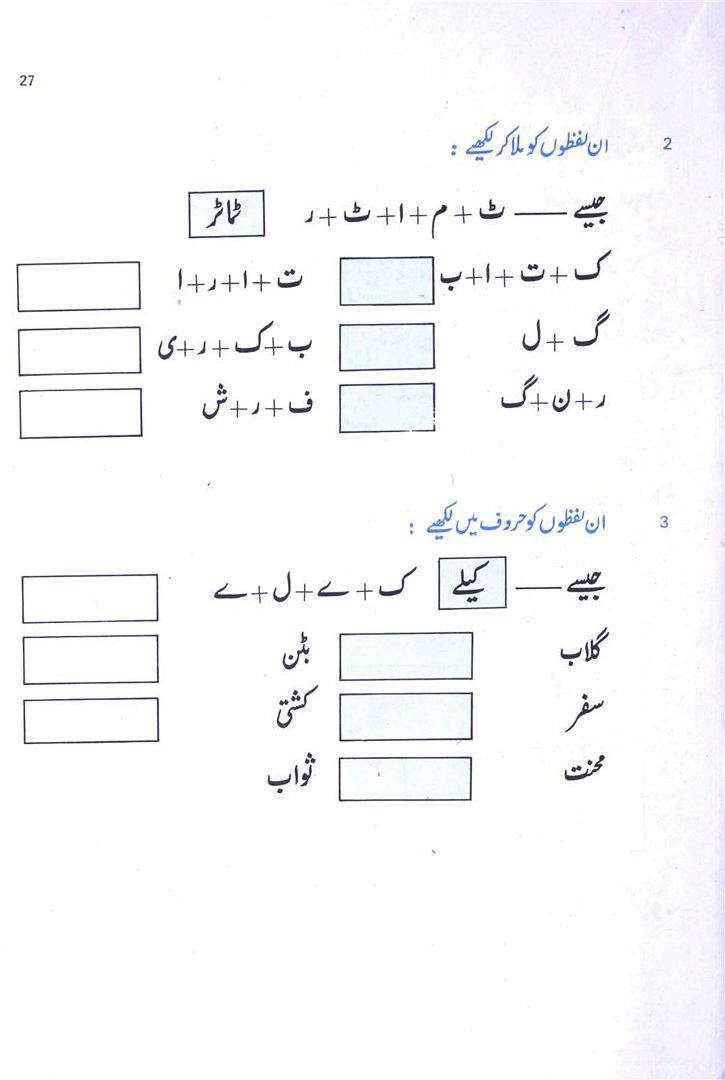 27
2 ان لفظوں کو ملا کر لکھیے :
جیسے —— ٹ + م + ا + ٹ + ر ٹماٹر
ک + ت + ا + ب ت + ا + ر + ا
گ + ل ب + ک + ر + ی
ر + ن + گ ف + ر + ش
3 ان لفظوں کو حروف میں لکھیے :
جیسے —— کیلے ک + ے + ل + ے
گلاب بٹن
سفر کشتی
محنت ثواب